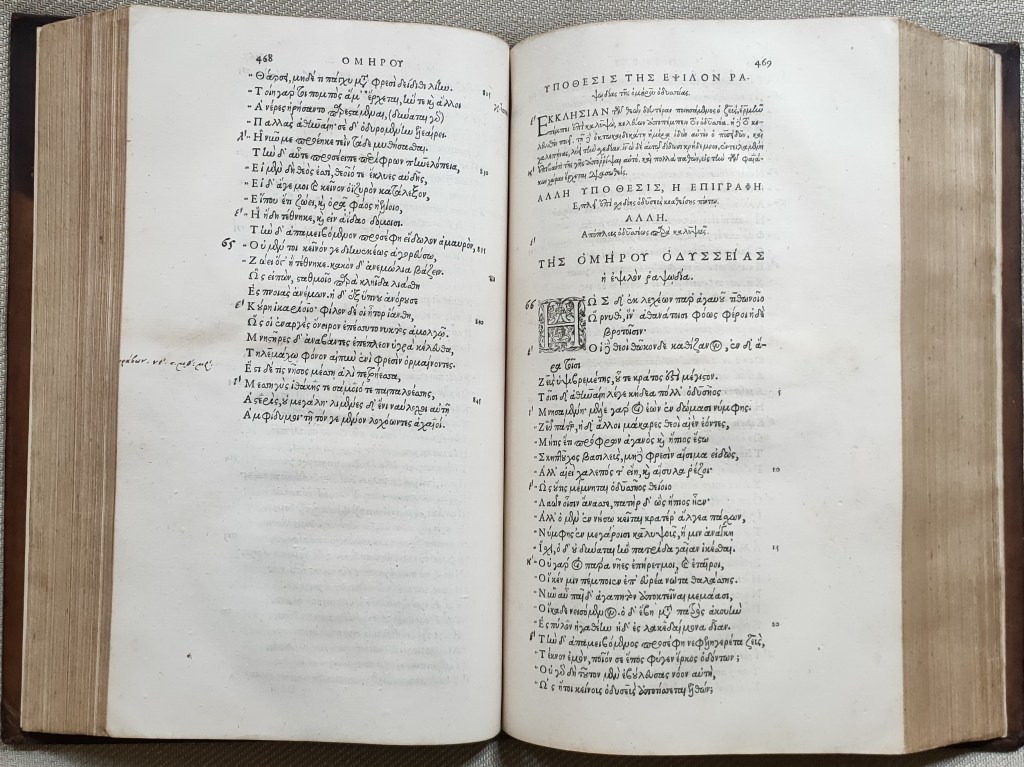 468 ΟΜΗΡΟΥ
-Θάρσει, μηδέ τι πάγχυ μετὰ φρεσὶ δείδιθι λίην. 825
-Τοίη γάρ οἱ πομπὸς ἅμ' ἔρχεται, ἥν τε καὶ ἄλλοι
-Ἀνέρες ἠρήσαντο παρεστάμεναι, (δύναται γὰρ)
-Παλλὰς ἀθηναίη· σὲ δ' ὀδυρομένην ἐλεαίρει.
-Ἣ νῦν με προέηκε τεῒν τάδε μυθήσασθαι.
Τὴν δ' αὖτε προσέειπε περίφρων πηνελόπεια, 830
-Εἰ μὲν δὴ θεός ἐσσι, θεοῖό τε ἔκλυες αὐδῆς,
-Εἰ δ' ἄγε μοι καὶ κεῖνον ὀϊζυρὸν κατάλεξον,
-Εἴ που ἔτι ζώει, καὶ ὁρᾷ φάος ἠελίοιο,
-Ἢ ἤδη τέθνηκε, καὶ εἰν ἀΐδαο δόμοισι.
Τὴν δ' ἀπαμειβόμενον προσέφη εἴδωλον ἀμαυρὸν, 835
65 -Οὐ μέν τοι κεῖνόν γε διηνεκέως ἀγορεύσω,
-Ζώει ὅγ' ἢ τέθνηκε· κακὸν δ' ἀνεμώλια βάζειν.
Ὣς εἰπὼν, σταθμοῖο παρὰ κληῖδα λιάσθη
Ἐς πνοιὰς ἀνέμων. ἡ δ' ἐξ ὕπνου ἀνόρουσε
Κούρη ἰκαρίοιο· φίλον δέ οἱ ἦτορ ἰάνθη, 840
Ὥς οἱ ἐναργὲς ὄνειρον ἐπέσσυτο νυκτὸς ἀμολγῷ.
Μνηστῆρες δ' ἀναβάντες ἐπέπλεον ὑγρὰ κέλευθα,
Τηλεμάχῳ φόνον αἰπὺν ἐνὶ φρεσὶν ὁρμαίνοντες.
Ἔστι δέ τις νῆσος μέσσῃ ἁλὶ πετρήεσσα,
Μεσσηγὺς ἰθάκης τε σάμοιό τε παιπαλοέσσης, 845
Ἀστερὶς, οὐ μεγάλη· λιμένες δ' ἔνι ναύλοχοι αὐτῇ
Ἀμφίδυμοι· τῇ τόν γε μένον λοχόωντες ἀχαιοί.
469
ΥΠΟΘΕΣΙΣ ΤΗΣ ΕΨΙΛΟΝ ΡΑ-
ψῳδίας τῆς ὁμήρου ὀδυσσείας.
ΕΚΚΛΗΣΙΑΝ τῶν θεῶν δευτέραν ποιησάμενος ὁ ζεὺς, ἑρμῆν
ΑΛΛΗ ΥΠΟΘΕΣΙΣ, Η ΕΠΙΓΡΑΦΗ.
ΑΛΛΗ.
Ἀπόπλοια ὀδυσσέως παρὰ καλυψοῦς.
ΤΗΣ ὉΜΗΡΟΥ ὈΔΥΣΣΕΙΑΣ
ἢ ἐψιλὸν ῥαψῳδία.
66 ΗΩΣ δ' ἐκ λεχέων παρ' ἀγαυοῦ τιθωνοῖο
Ὤρνυθ', ἵν' ἀθανάτοισι φόως φέροι ἠδὲ
βροτοῖσιν·
Οἱ δὲ θεοὶ θῶκονδε καθίζανον, ἐν δ' ἄ-
ρα τοῖσι
Ζεὺς ὑψιβρεμέτης, οὗ τε κράτος ἐστὶ μέγιστον.
Τοῖσι δ' ἀθηναίη λέγε κήδεα πόλλ' ὀδυσῆος 5
Μνησαμένη· μέλε γάρ οἱ ἐὼν ἐν δώμασι νύμφης.
-Ζεῦ πάτερ, ἠδ' ἄλλοι μάκαρες θεοὶ αἰὲν ἐόντες,
-Μή τις ἔτι πρόφρων ἀγανὸς καὶ ἤπιος ἔστω
-Σκηπτοῦχος βασιλεὺς, μηδὲ φρεσὶν αἴσιμα εἰδὼς,
-Ἀλλ' αἰεὶ χαλεπός τ' εἴη, καὶ αἴσυλα ῥέζοι· 10
-Ὡς οὔτις μέμνηται ὀδυσσῆος θείοιο
-Λαῶν οἷσιν ἄνασσε, πατὴρ δ' ὣς ἤπιος ἦεν·
-Ἀλλ' ὁ μὲν ἐν νήσῳ κεῖται κρατέρ' ἄλγεα πάσχων,
-Νύμφης ἐν μεγάροισι καλυψοῦς, ἥ μιν ἀνάγκῃ
-Ἴσχει, ὁ δ' οὐ δύναται ἣν πατρίδα γαῖαν ἱκέσθαι. 15
-Οὐ γάρ οἱ πάρα νῆες ἐπήρετμοι, καὶ ἑταῖροι,
-Οἵ κέν μιν πέμποιεν ἐπ' εὐρέα νῶτα θαλάσσης.
-Νῦν αὖ παῖδ' ἀγαπητὸν ἀποκτεῖναι μεμάασι,
-Οἴκαδε νεισόμενον. ὁ δ' ἔβη μετὰ πατρὸς ἀκουὴν
-Ἐς πύλον ἠγαθέην ἠδ' ἐς λακεδαίμονα δῖαν. 20
Τὴν δ' ἀπαμειβόμενος προσέφη νεφεληγερέτα ζεὺς,
-Τέκνον ἐμὸν, ποῖόν σε ἔπος φύγεν ἕρκος ὀδόντων;
-Οὐ γὰρ δὴ τοῦτον μὲν ἐβούλευσας νόον αὐτὴ,
-Ὡς ἤτοι κείνους ὀδυσεὺς ἀποτίσεται ἐλθών;